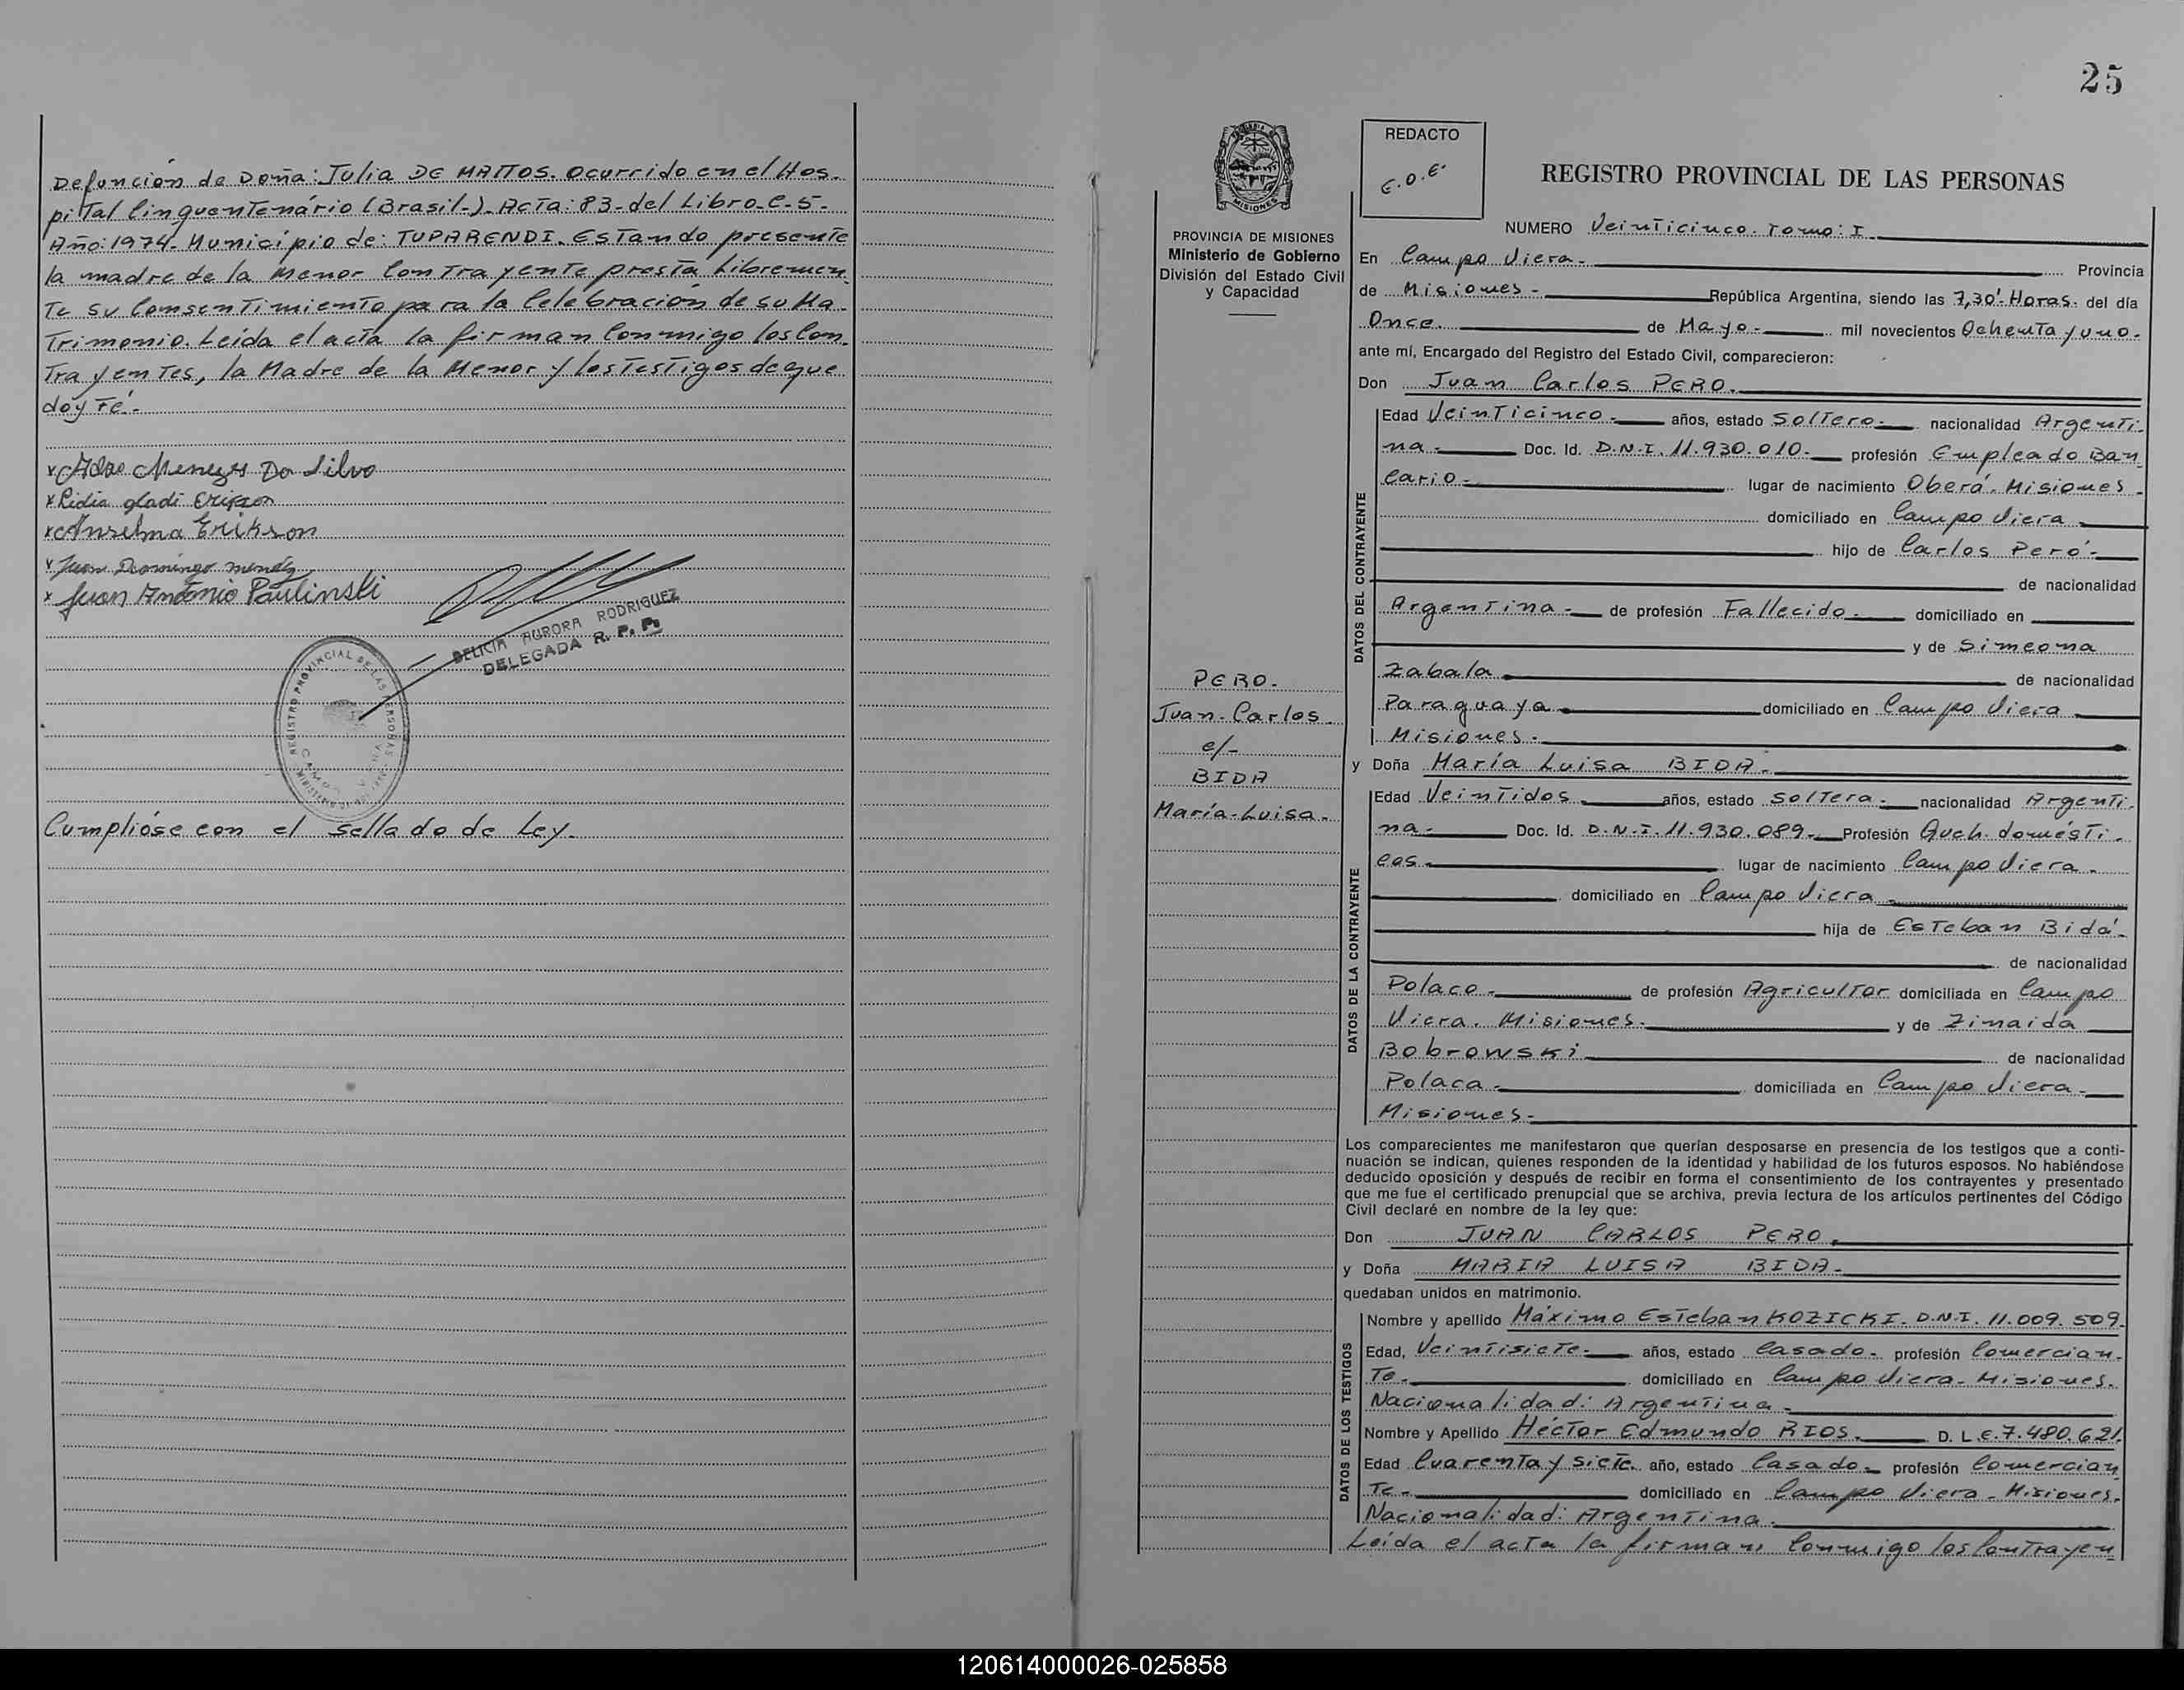 Defunción de Doña: Julia DE MATTOS. Ocurrido en el Hos-
pital Cinquentenário (Brasil-). Acta: 83- del Libro-C-5-
Año: 1974- Municipio de: TUPARENDI. Estando presente
la madre de la Menor Contrayente presta libremen-
te su Consentimiento para la Celebración de su Ma-
trimonio. Leída el acta la firman Conmigo los Con-
trayentes, la Madre de la Menor y los testigos de que
doy Fé.-
x Adao Menezes Da Silva
x Lidia gladi Erikson
x Anselma Erikson
x Juan Domingo mendez
x Juan Antonio Paulinski
DELICIA AURORA RODRIGUEZ
DELEGADA R. P. P.
REGISTRO PROVINCIAL DE LAS PERSONAS
Cumplióse con el sellado de Ley.
25
REDACTO
C.O.E.
MISIONES
PROVINCIA DE MISIONES
Ministerio de Gobierno
División del Estado Civil
y Capacidad
PERO-
Juan-Carlos-
c/-
BIDA
María-Luisa-
REGISTRO PROVINCIAL DE LAS PERSONAS
NUMERO Veinticinco. Tomo: I
En Campo Viera- Provincia
de Misiones- República Argentina, siendo las 7,30'-Horas- del día
Once. de Mayo- mil novecientos Ochenta y uno-
ante mí, Encargado del Registro del Estado Civil, comparecieron:
Don Juan Carlos PERO.
DATOS DEL CONTRAYENTE
Edad Veinticinco- años, estado Soltero- nacionalidad Argenti-
na- Doc. Id. D.N.I. 11.930.010- profesión Empleado Ban
cario- lugar de nacimiento Oberá- Misiones-
domiciliado en Campo Viera
hijo de Carlos Peró-
de nacionalidad
Argentina- de profesión Fallecido- domiciliado en
y de Simeona
Zabala de nacionalidad
Paraguaya domiciliado en Campo Viera
Misiones-
y Doña María Luisa BIDA-
DATOS DE LA CONTRAYENTE
Edad Veintidos años, estado Soltera- nacionalidad Argenti-
na- Doc. Id. D.N.I. 11.930.089- Profesión Queh. domésti-
cas- lugar de nacimiento Campo Viera-
domiciliado en Campo Viera-
hija de Esteban Bidá-
de nacionalidad
Polaco- de profesión Agricultor domiciliada en Campo
Viera. Misiones- y de Zinaida
Bobrowski de nacionalidad
Polaca- domiciliada en Campo Viera-
Misiones-
Los comparecientes me manifestaron que querían desposarse en presencia de los testigos que a conti-
nuación se indican, quienes responden de la identidad y habilidad de los futuros esposos. No habiéndose
deducido oposición y después de recibir en forma el consentimiento de los contrayentes y presentado
que me fue el certificado prenupcial que se archiva, previa lectura de los artículos pertinentes del Código
Civil declaré en nombre de la ley que:
Don JUAN CARLOS PERO.
y Doña MARIA LUISA BIDA-
quedaban unidos en matrimonio.
DATOS DE LOS TESTIGOS
Nombre y apellido Máximo Esteban KOZICKI. D.N.I. 11.009.509.
Edad, Veintisiete- años, estado Casado- profesión Comercian-
te- domiciliado en Campo Viera- Misiones.
Nacionalidad: Argentina-
Nombre y Apellido Héctor Edmundo RIOS. D. L.E. 7.480.621.
Edad Cuarenta y Siete. año, estado Casado- profesión Comercian
te- domiciliado en Campo Viera- Misiones.
Nacionalidad: Argentina.
Leída el acta la firman Conmigo los Contrayen
120614000026-025858